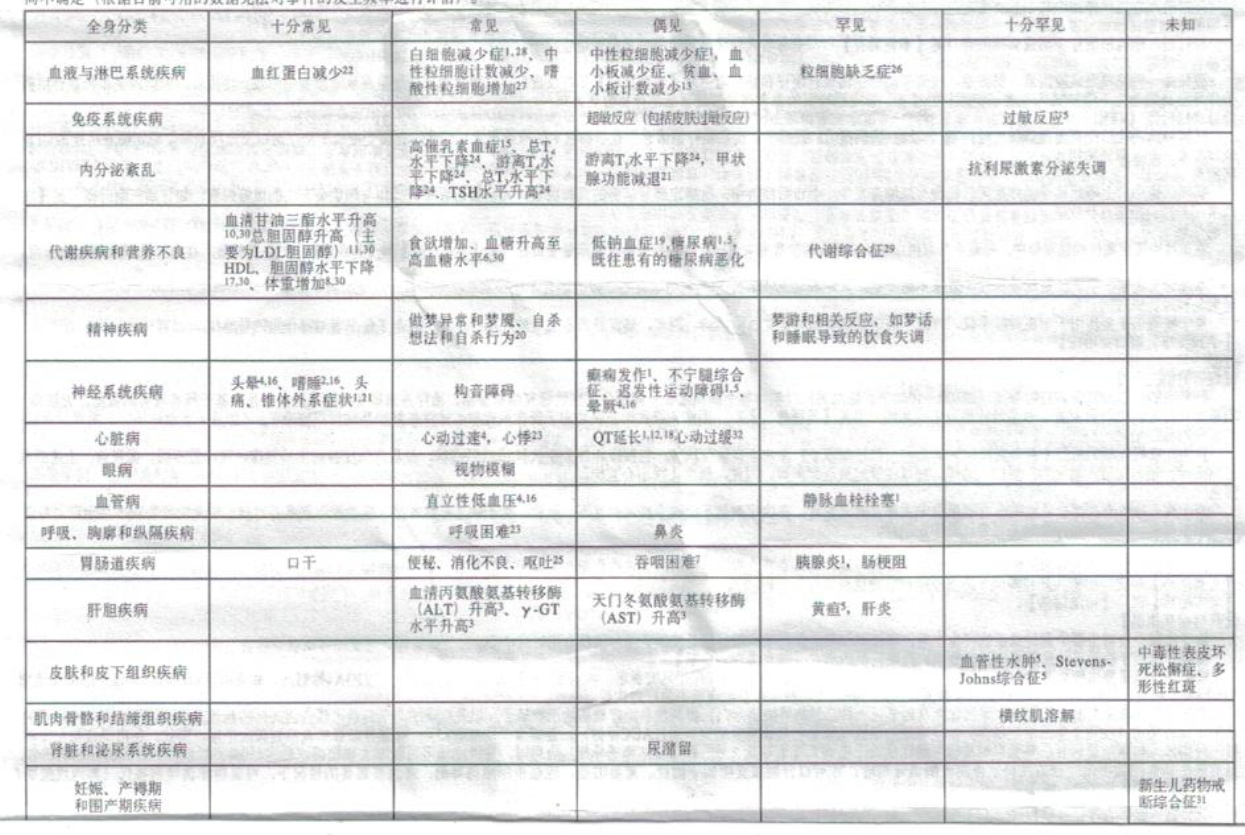 尚不确定（根据目前可用的数据无法对事件的发生频率进行评估）。
全身分类 十分常见 常见 偶见 罕见 十分罕见 未知
血液与淋巴系统疾病
血红蛋白减少22
白细胞减少症1,28、中
性粒细胞计数减少、嗜
酸性粒细胞增加27
中性粒细胞减少症1，血
小板减少症、贫血、血
小板计数减少13
粒细胞缺乏症26
免疫系统疾病
超敏反应（包括皮肤过敏反应）
过敏反应5
内分泌紊乱
高催乳素血症15、总T4
水平下降24、游离T4水
平下降24、总T3水平下
降24、TSH水平升高24
游离T3水平下降24、甲状
腺功能减退21
抗利尿激素分泌失调
代谢疾病和营养不良
血清甘油三酯水平升高
10,30总胆固醇升高（主
要为LDL胆固醇）11,30
HDL、胆固醇水平下降
17,30、体重增加8,30
食欲增加、血糖升高至
高血糖水平6,30
低钠血症19,糖尿病1,5,
既往患有的糖尿病恶化
代谢综合征29
精神疾病
做梦异常和梦魇、自杀
想法和自杀行为20
梦游和相关反应，如梦话
和睡眠导致的饮食失调
神经系统疾病
头晕4,16、嗜睡2,16、头
痛、锥体外系症状1,21
构音障碍
癫痫发作1、不宁腿综合
征、迟发性运动障碍1,5
晕厥4,16
心脏病
心动过速4，心悸23
QT延长1,12,18心动过缓32
眼病
视物模糊
血管病
直立性低血压4,16
静脉血栓栓塞1
呼吸、胸廓和纵隔疾病
呼吸困难23
鼻炎
胃肠道疾病
口干
便秘、消化不良、呕吐25
吞咽困难7
胰腺炎1，肠梗阻
肝胆疾病
血清丙氨酸氨基转移酶
（ALT）升高3、γ-GT
水平升高3
天门冬氨酸氨基转移酶
（AST）升高3
黄疸5、肝炎
皮肤和皮下组织疾病
血管性水肿5、Stevens-
Johns综合征5
中毒性表皮坏
死松懈症、多
形性红斑
肌肉骨骼和结缔组织疾病
横纹肌溶解
肾脏和泌尿系统疾病
尿潴留
妊娠、产褥期
和围产期疾病
新生儿药物戒
断综合征31